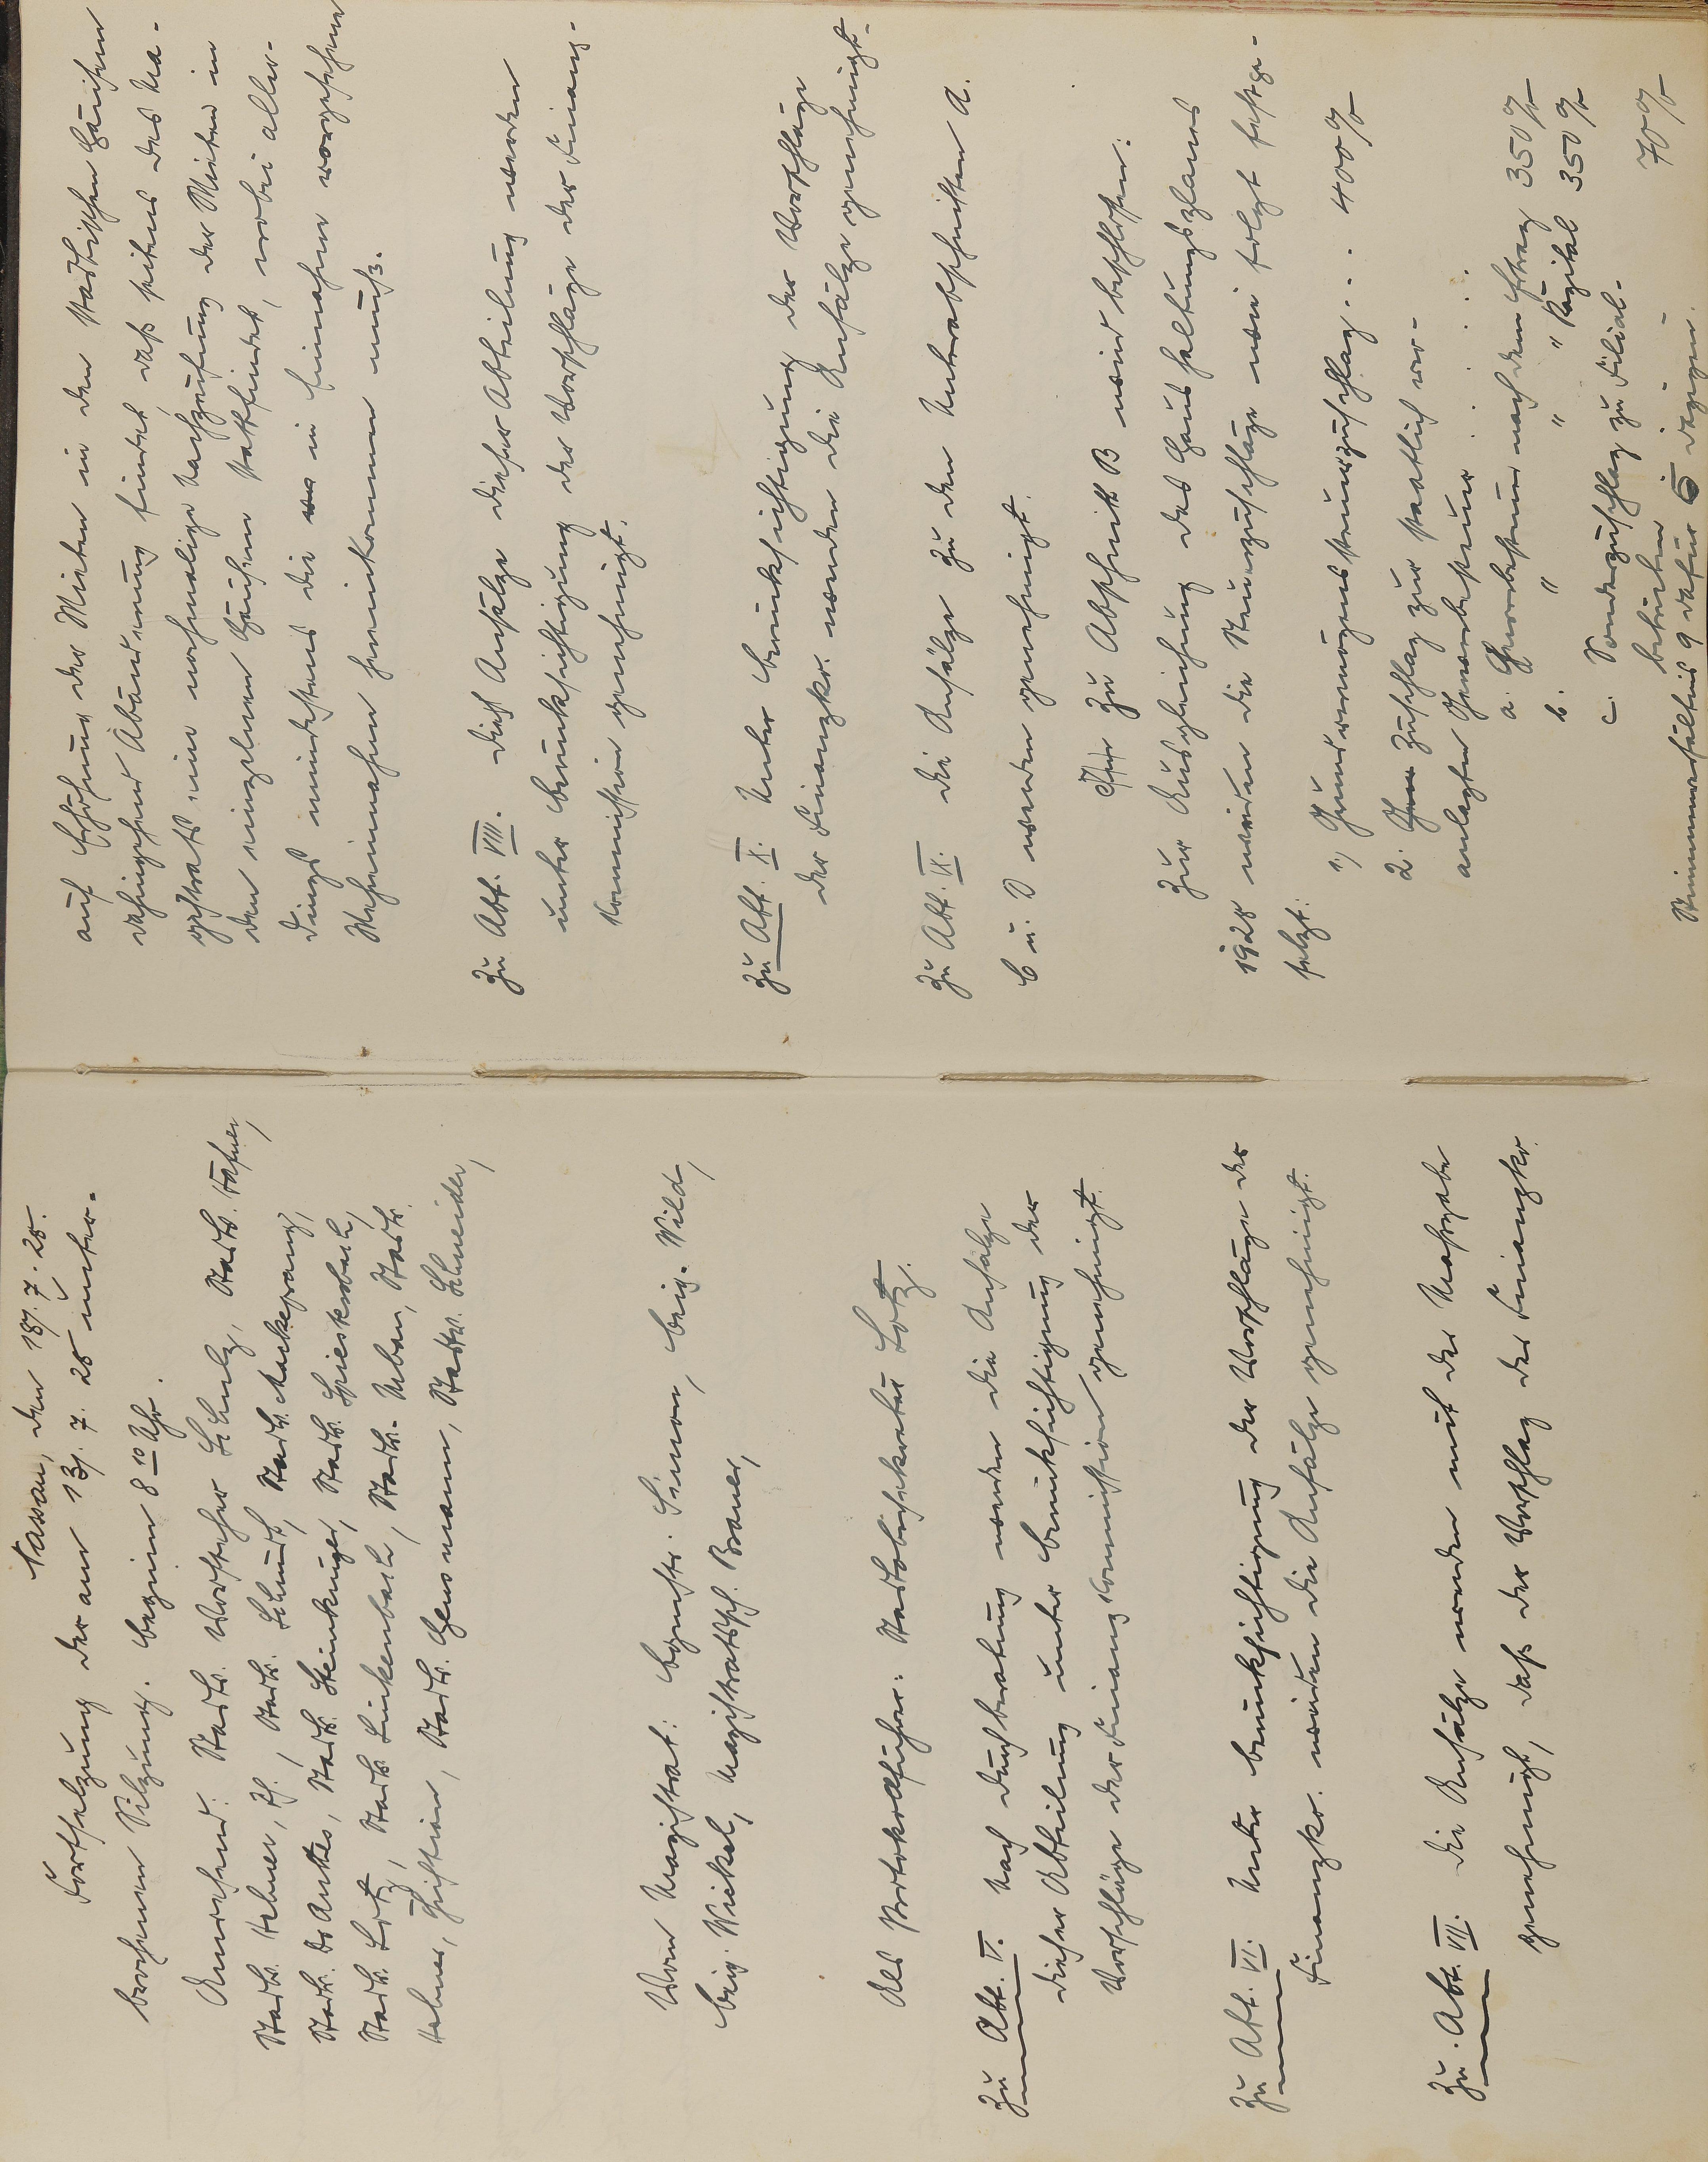 Nassau, den 18. 7. 28.
Fortsetzung der am 13. 7. 28 unter-
brochenen Sitzung. Beginn 8 10 Uhr.
Anwesend: Stadtv. Vorsteher Schulz, Stadtv. Käfner,
Stadtv. Hehner, Stadtv. Schmidt, Stadtv. Mackeprang,
Stadtv. Dr Anthes, Stadtv. Steinkuger, Stadtv. Sprieskersbach,
Stadtv. Lotz, Stadtv. Linkenbach, Stadtv. Urban, Stadtv.
Hehner, Christian, Stadtv. Hensmann, Stadtv. Schneider,
Vom Magistrat: Bgmstr. Simon, Beig. Wild,
Beig. Nickel, Magistratssch. Braun,
Als Protokollführer: Stadtobersekretär Lotz.
Zu Abt. V. Nach Durchberatung werden die Ansätze
dieser Abteilung unter Berücksichtigung der
Vorschläge der Finanzkommission genehmigt.
Zu Abt. VI. Unter Berücksichtigung der Vorschläge der
Finanzko. werden die Ansätze genehmigt.
Zu Abt. VII. Die Ansätze werden mit der Maßgabe
genehmigt, daß der Vorschlag der Finanzko.
auf Erhöhung der Mieten in den städtischen Häusern
dahingehend Abänderung findet, daß seitens des Ma-
gistrats eine nochmalige Nachprüfung der Mieten in
den einzelnen Häusern stattfindet, wobei aller-
dings mindestens die in Einnahme vorgesehenen
Mehreinnahmen hereinkommen muß.
Zu Abt. VIII. Auch Ansätze dieser Abteilung werden
unter Berücksichtigung der Vorschläge der Finanz-
kommission genehmigt.
Zu Abt. X. Unter Berücksichtigung der Vorschläge
der Finanzko. werden die Ansätze genehmigt.
Zu Abt. IX. Die Ansätze zu den Unterabschnitten A.
C u. D werden genehmigt.
Zu Abschnitt B wird beschlossen:
Zur Ausgleichung des Haushaltungsplanes
1928 werden die Steuerzuschläge wie folgt festge-
setzt:
1) Grundvermögenssteuerzuschlag . . . 400 %
2. Zuschlag zur staatlich ver-
anlagten Gewerbesteuer . . . .
a. Gewerbesteuer nach dem Ertrag 350 %
b. " " " Kapital 350 %
c. Sonderzuschlag zu Filial-
betrieben 70 %
Stimmverhältnis 9 dafür 5 dagegen.